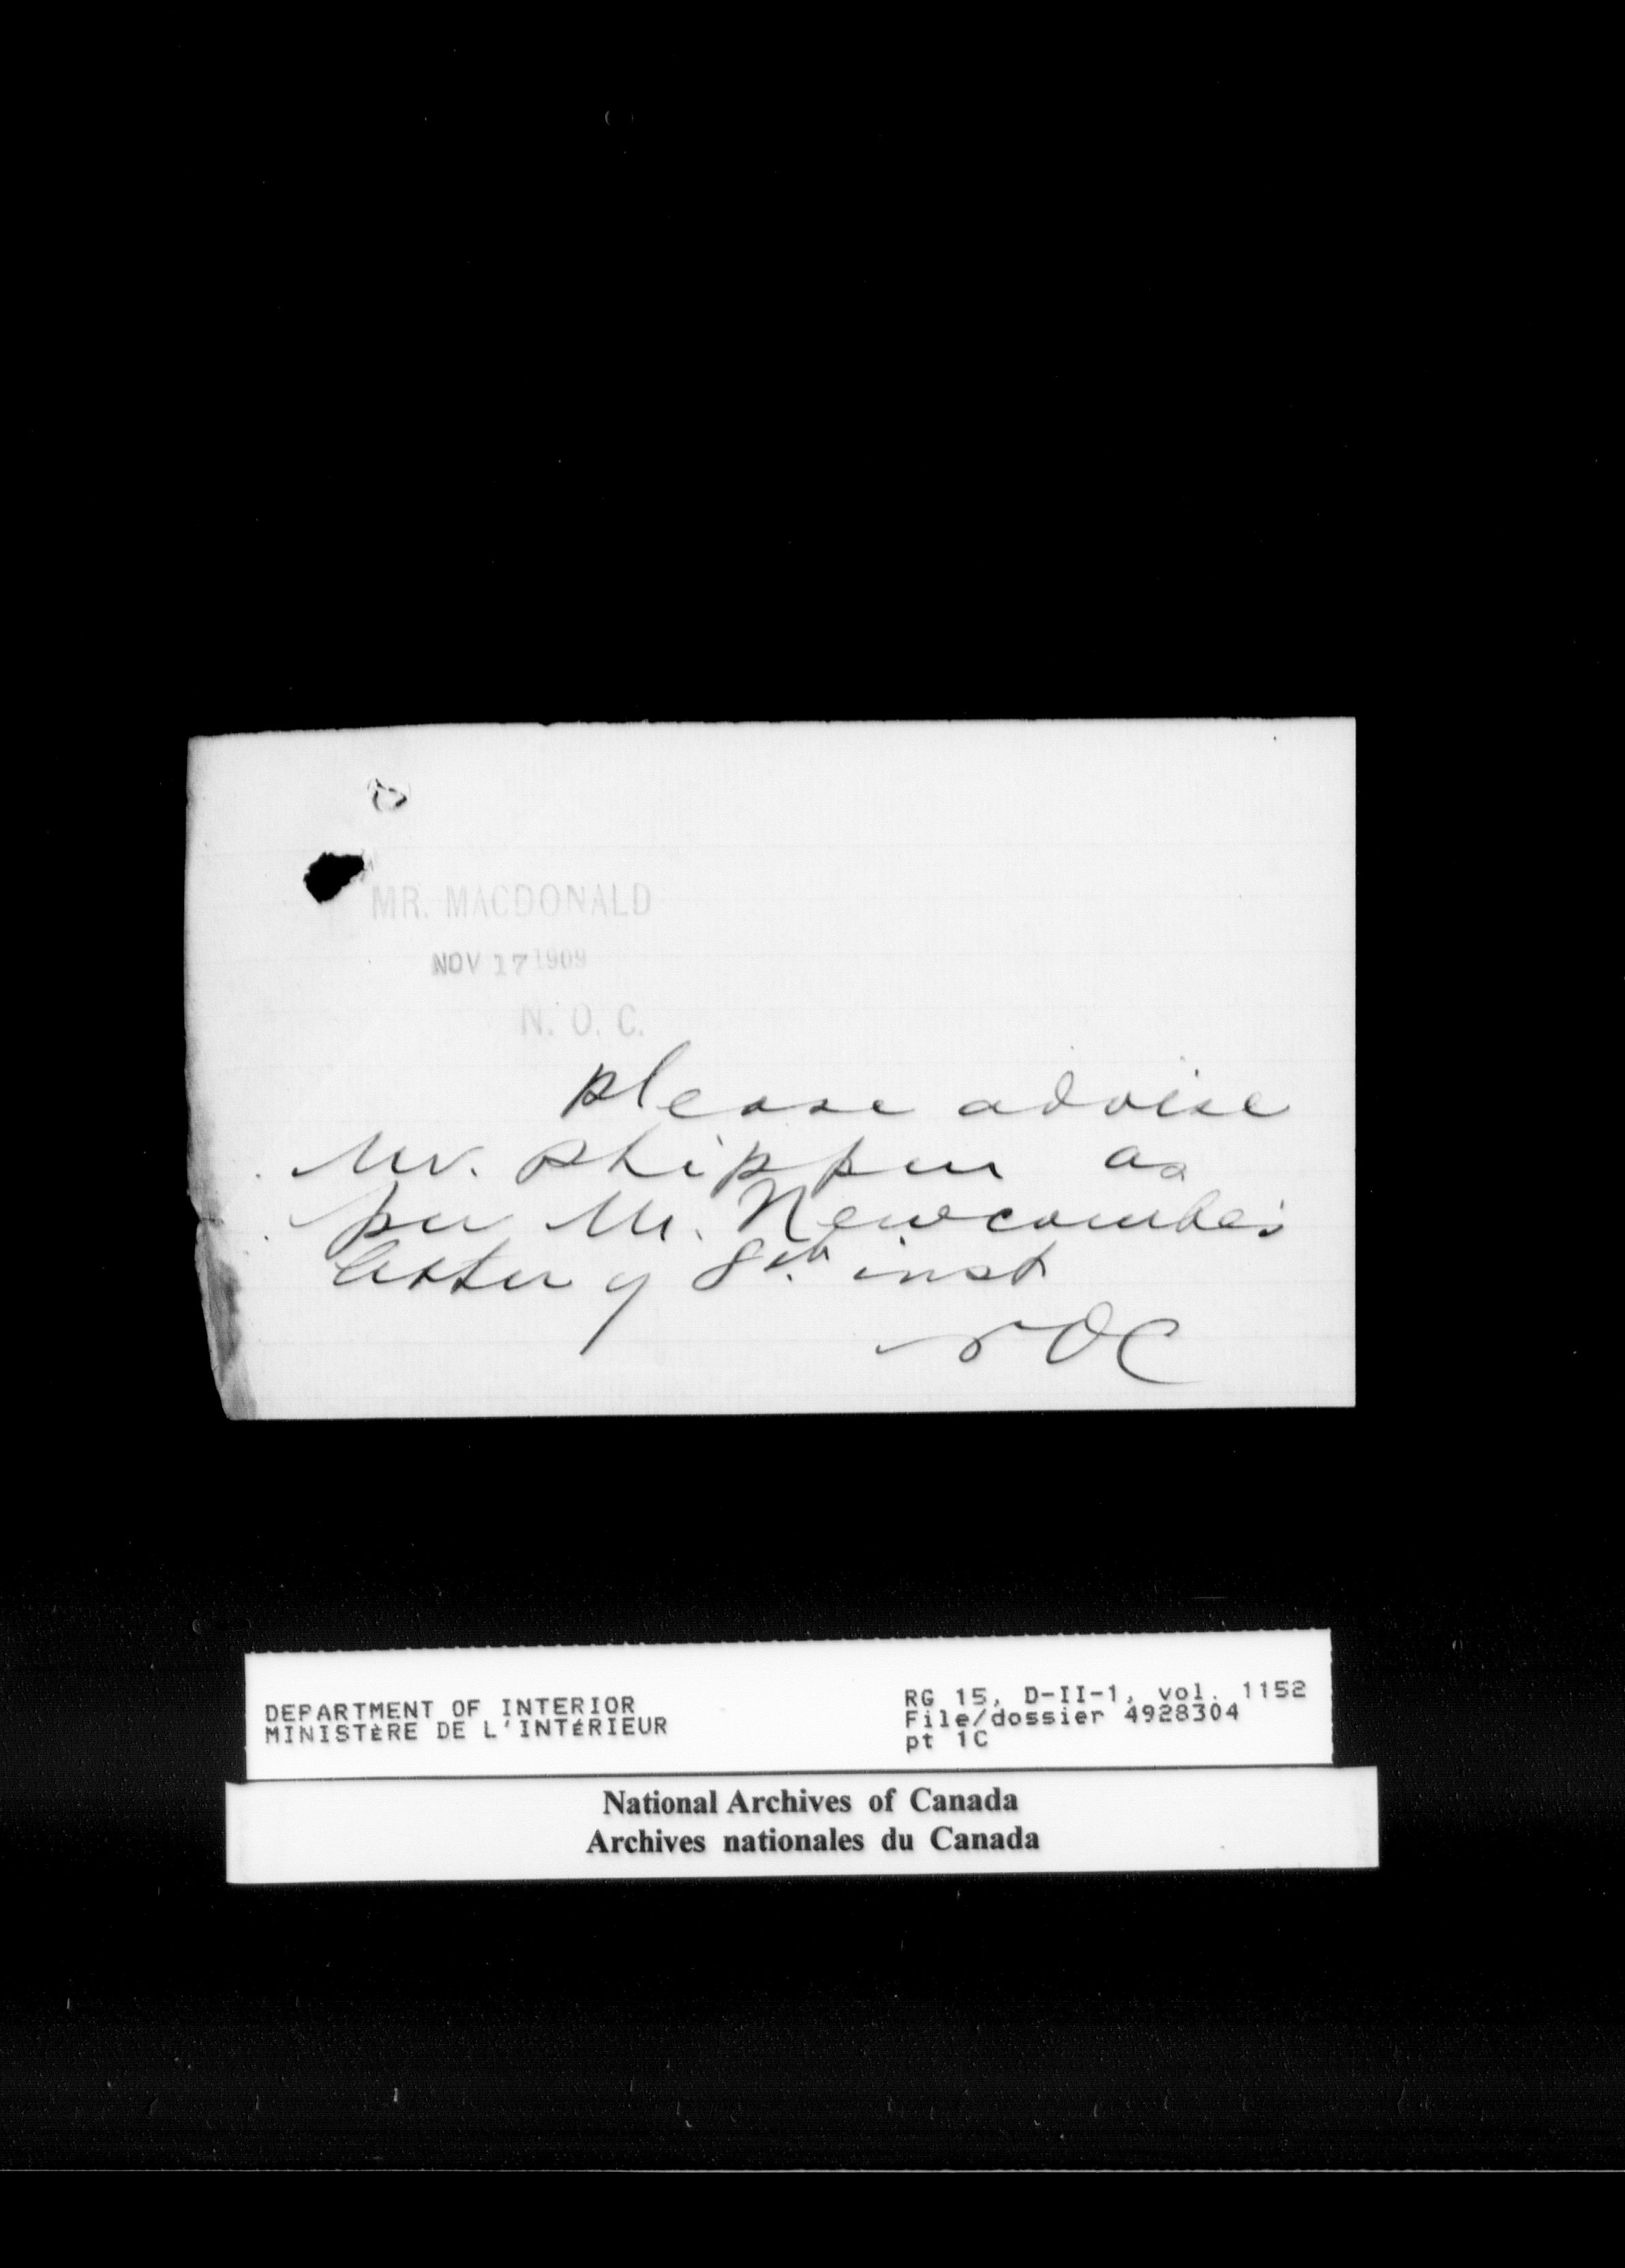 MR. MACDONALD
NOV 17 1909
N. O. C.
Please advise
Mr. Shippen as
per Mr. Newcombe's
letter of 8th. inst
NOC
DEPARTMENT OF INTERIOR
MINISTÈRE DE L'INTÉRIEUR
RG 15, D-II-1, vol. 1152
File/dossier 4928304
pt 1C
National Archives of Canada
Archives nationales du Canada